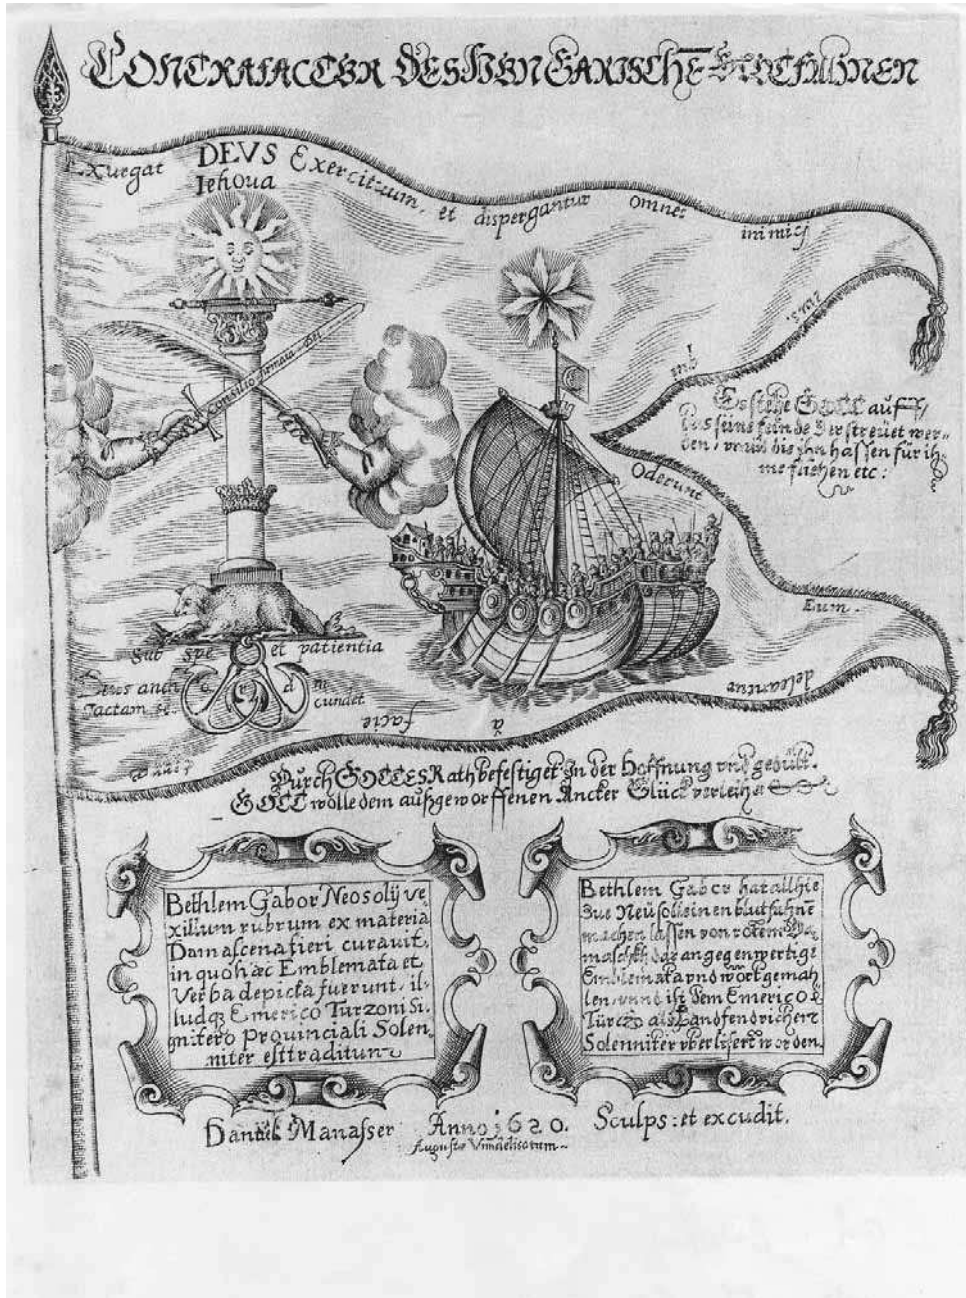 CONTRAFACTVR DES HVNGARISCHĒ BLVTFAHNEN
Exurgat DEVS Exercituum, et dispergantur omnes inimici
Iehoua
eius.
Consilio firmata Dei
qui
Es stehe GOTT auff/
das seine feinde Zerstreuet wer=
den, vnnd die ihn hassen für ih=
me fliehen etc:
Oderunt
Eum.
Sub spe et patientia
Deus anch o r a m
Iactam se. cundet
fugiant
à facie
Durch GOTTES Rath befestiget In der Hoffnung vnd gedult.
GOTT wolle dem außgeworffenen Ancker Glück verleihen
Bethlem Gabor Neosolij ve
xillum rubrum ex materia
Damascena fieri curauit,
in quo hæc Emblemata et
Verba depicta fuerunt, il,
ludqȝ Emerico Turzoni Si,
gnifero Prouinciali Solen,
niter est traditum
Bethlem Gabor hat allhie
Zue Neüsoll einen blutfahnē
machen lassen von rotem Da
maschkh dar an gegenwertige
Emblemata vnd wort gemah
len, vnnd ist dem Emerico
Turczo als Landfendrichen
Solenniter vberlifert worden.
Daniel Manasser Anno 1620. Sculps: et excudit.
Augustæ Vindelicorum